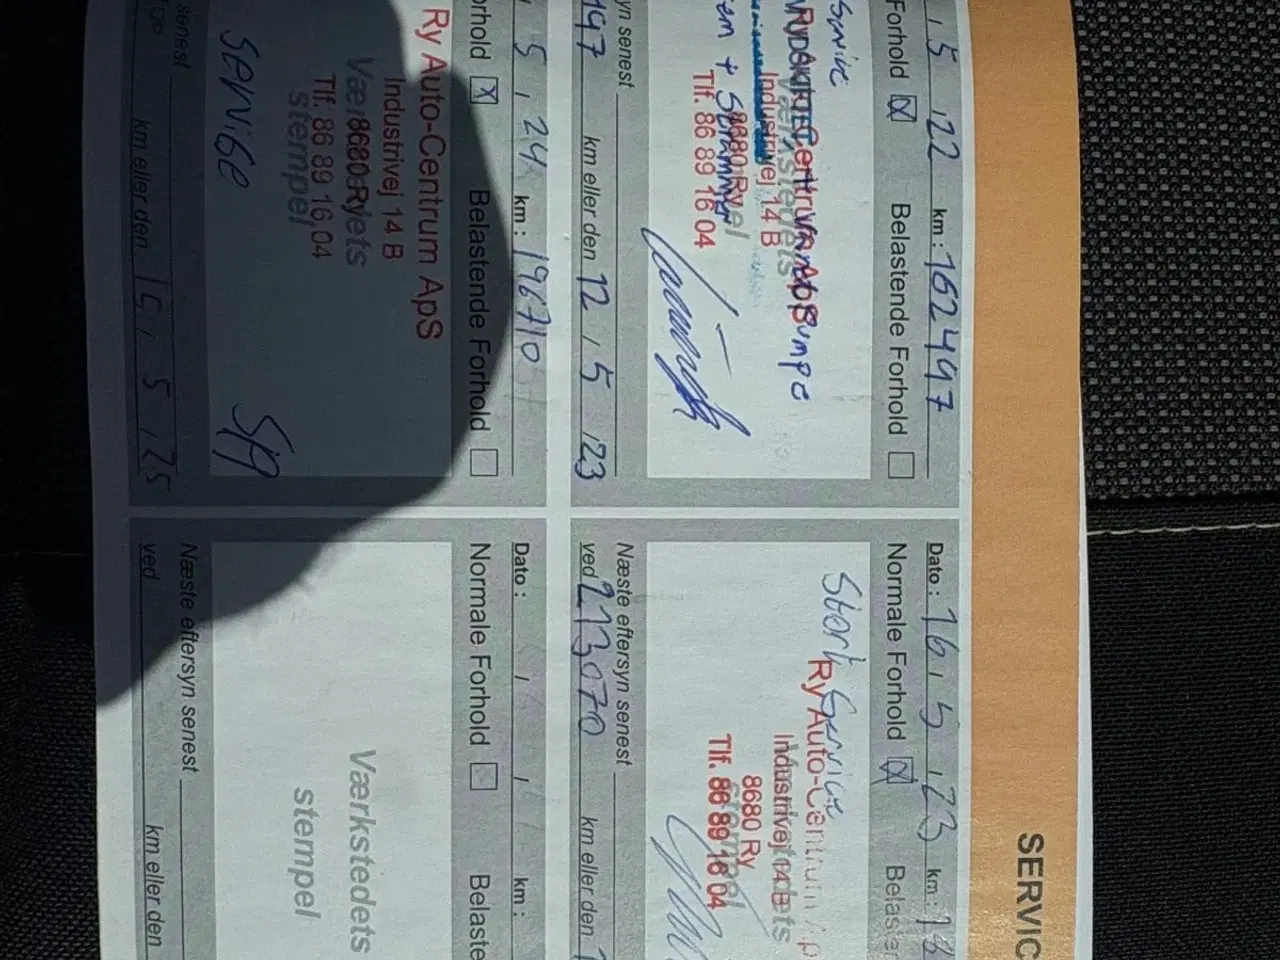 SERVIC
/ 5 / 22 km: 162497
Forhold ☒ Belastende Forhold ☐
Service
Vandpumpe
Ry Auto-Centrum ApS
Værkstedets
Industrivej 14 B
8680 Ry
stempel
Tlf. 86 89 16 04
yn senest
197 km eller den 12 / 5 / 23
Dato: 16 / 5 / 23 km: 18
Normale Forhold ☒ Belaste
Stort Service
Ry Auto-Centrum Ap
Værkstedets
Industrivej 14 B
8680 Ry
stempel
Tlf. 86 89 16 04
Næste eftersyn senest
ved 213070 km eller den 1
/ 5 / 24 km: 196710
orhold ☒ Belastende Forhold ☐
Ry Auto-Centrum ApS
Industrivej 14 B
Værkstedets
8680 Ry
Tlf. 86 89 16 04
stempel
Service
senest
km eller den 15 / 5 / 25
Dato: / / km:
Normale Forhold ☐ Belaste
Værkstedets
stempel
Næste eftersyn senest
ved km eller den